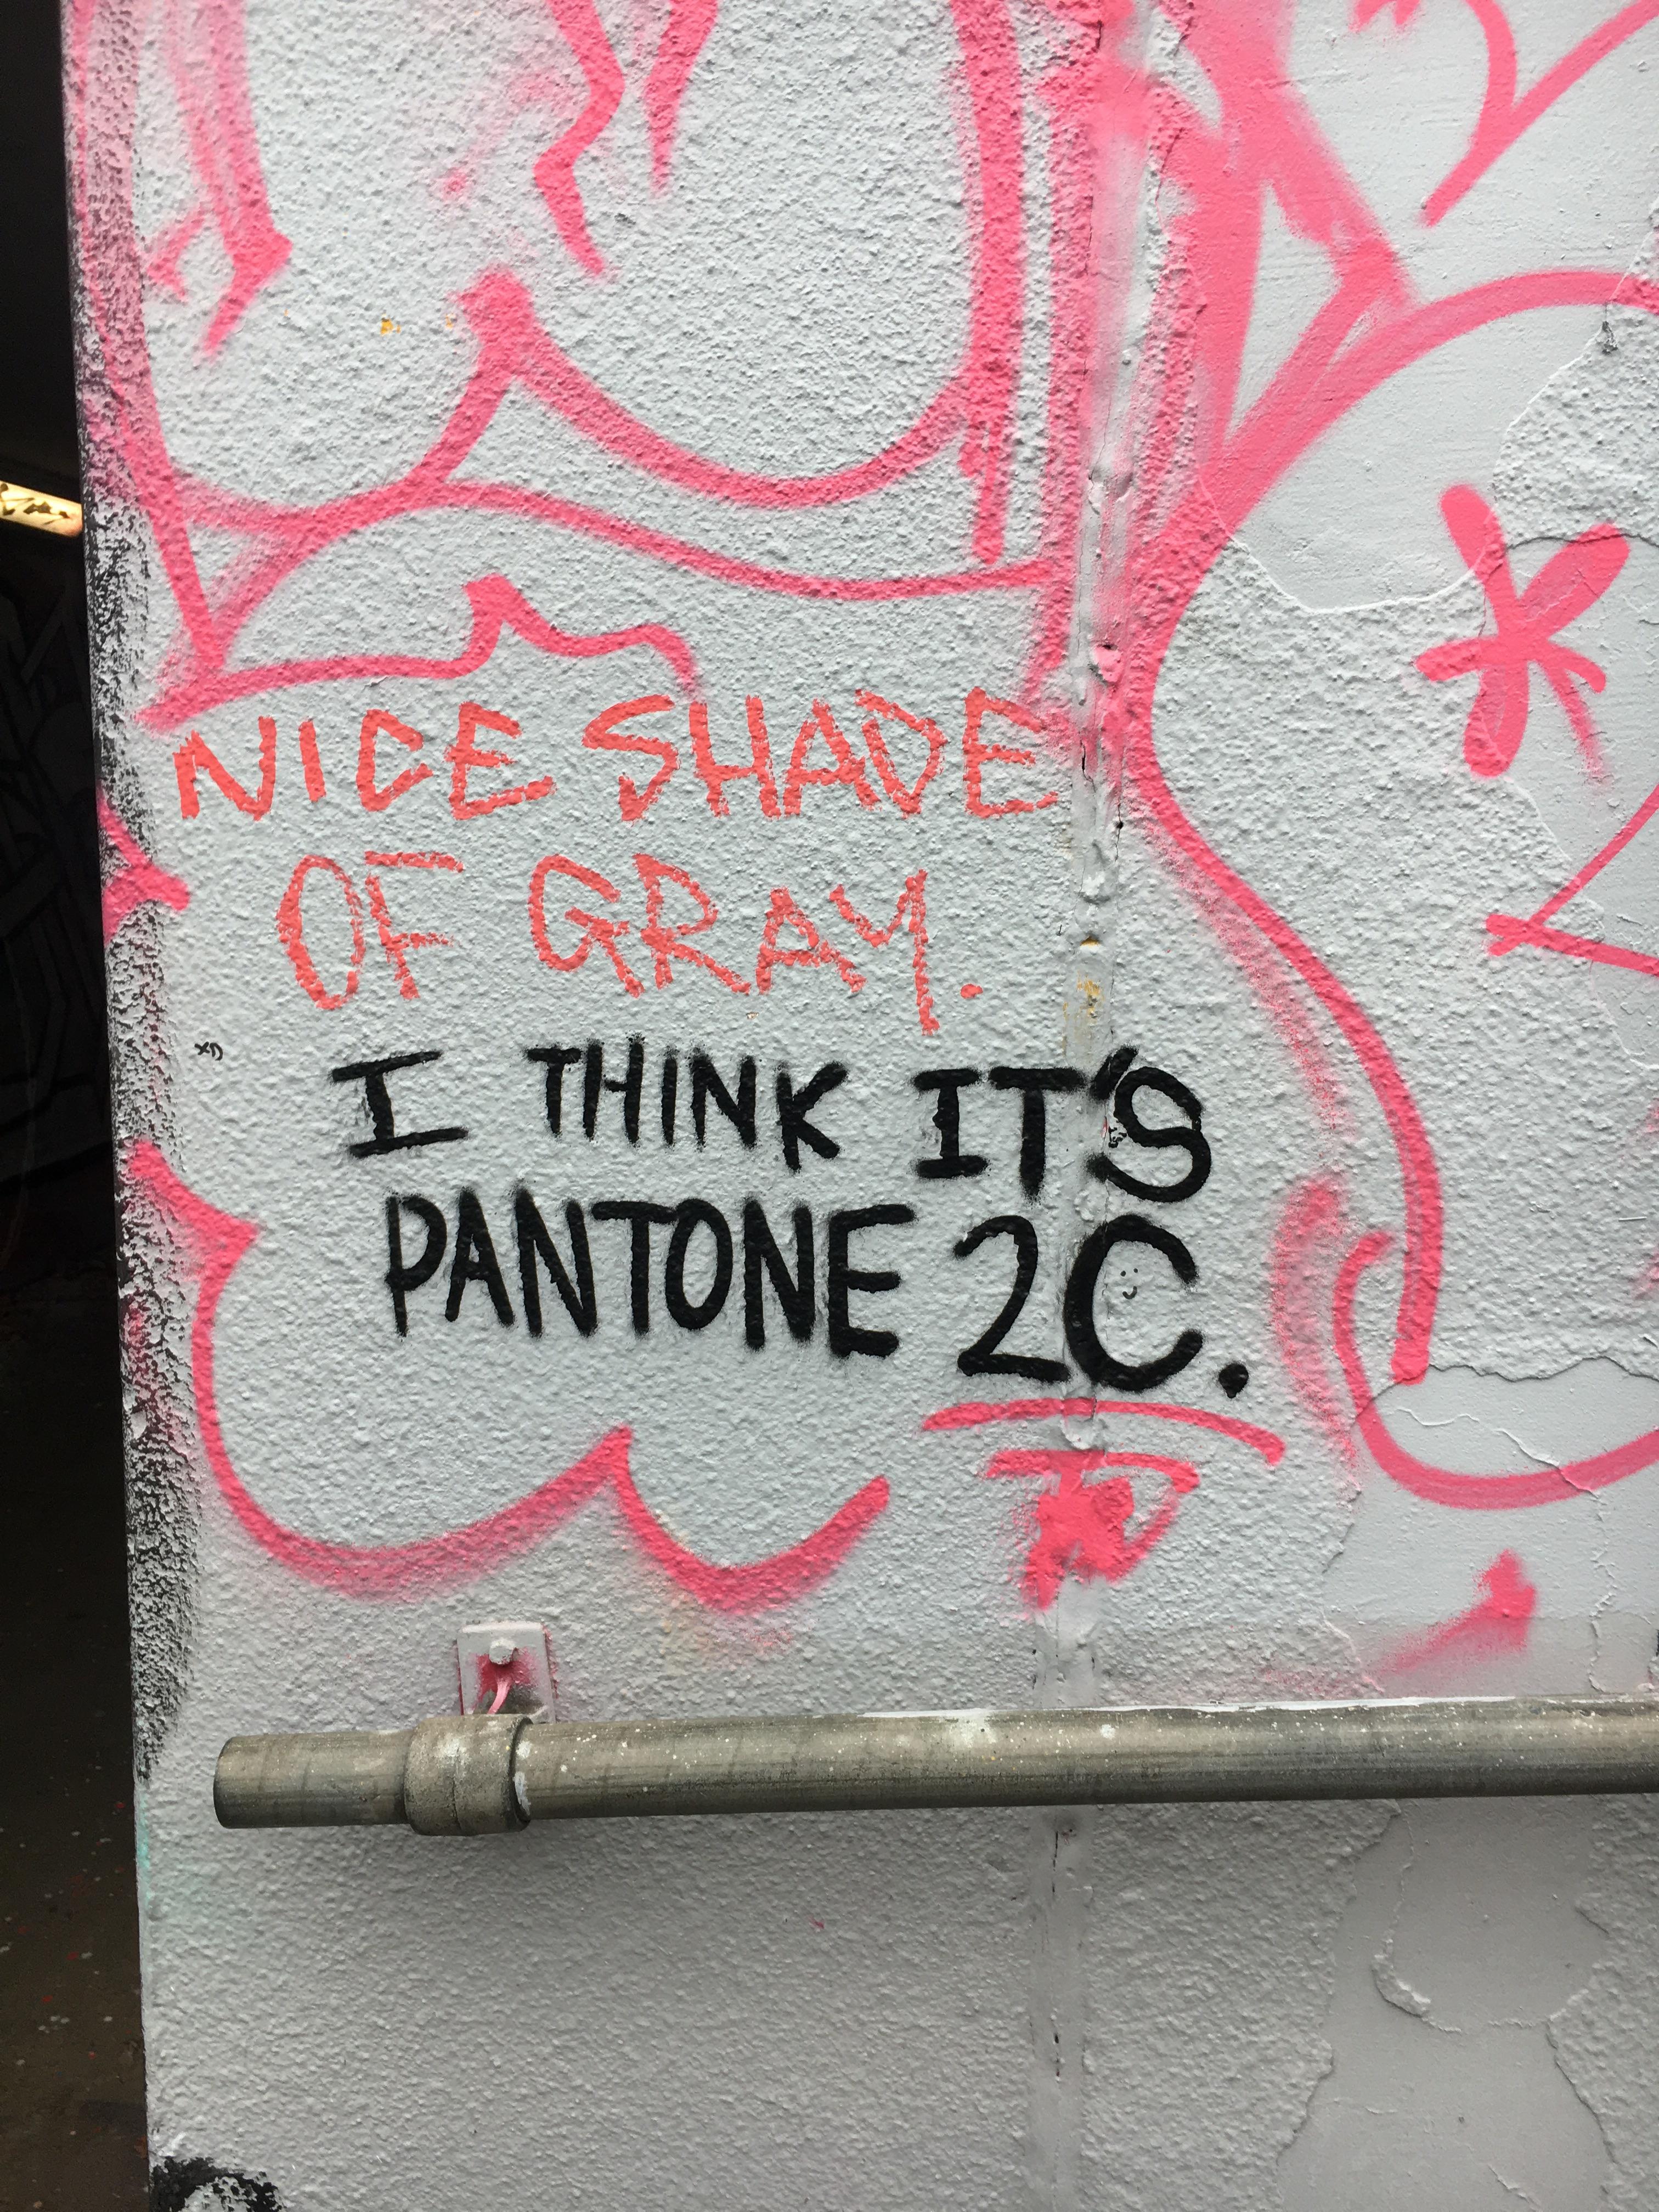 NICE SHADE
OF GRAY.
XD
I THINK IT'S
PANTONE 2C.